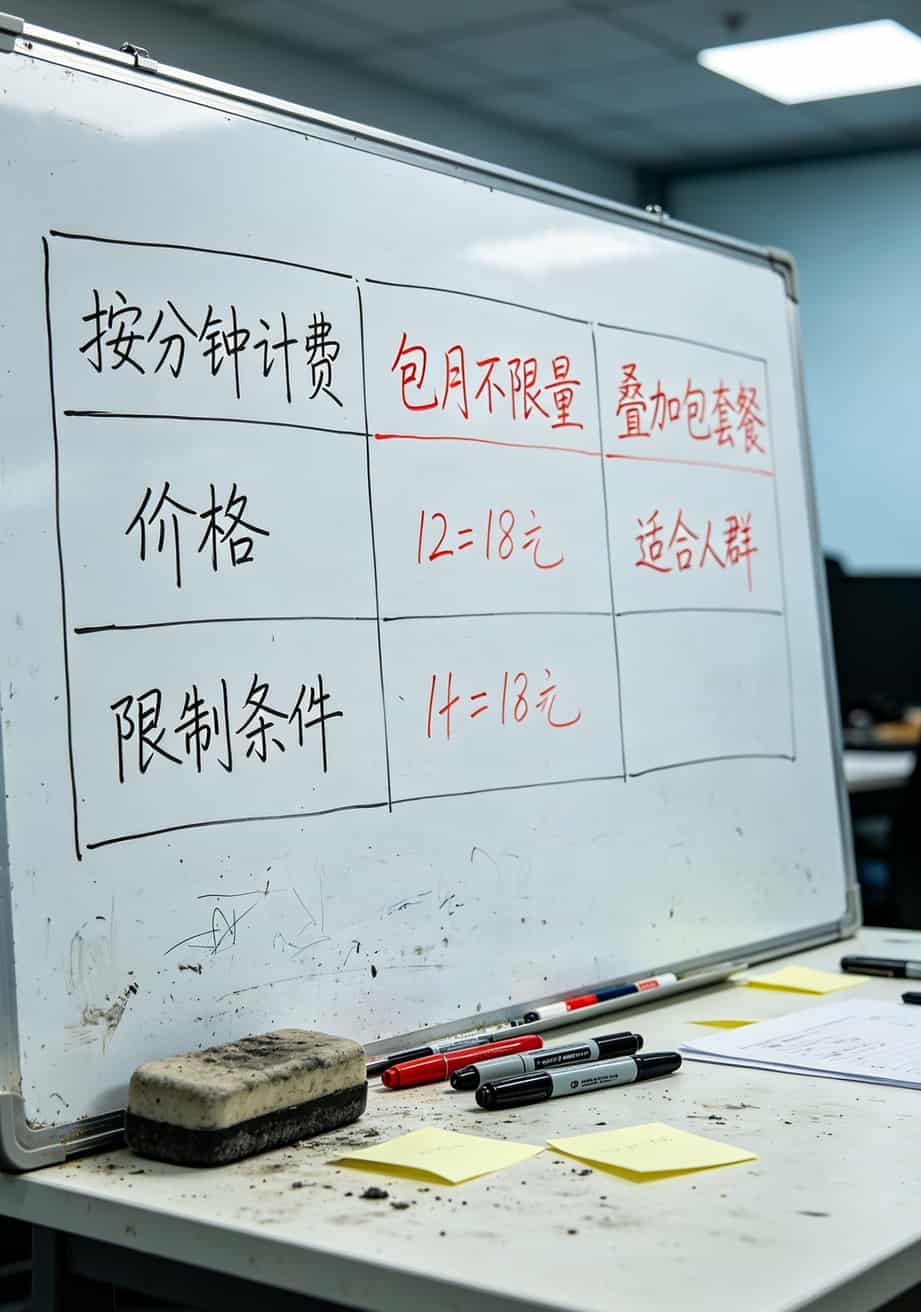 按分钟计费
包月不限量
叠加包套餐
价格
12=18元
适合人群
限制条件
1t=18元